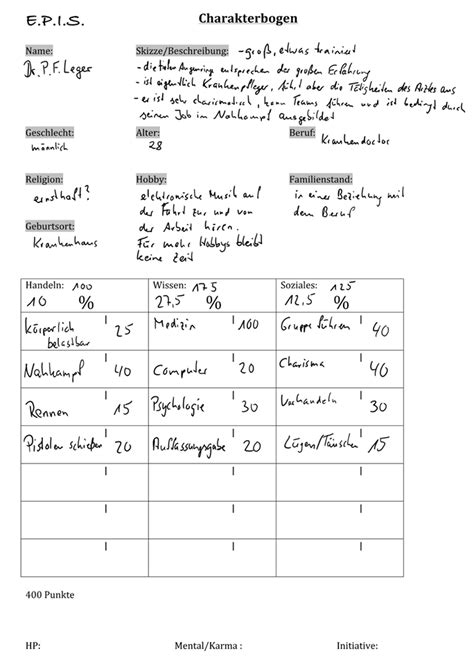 E.P.I.S.
Charakterbogen
Name:
Dr. P. F. Leger
Skizze/Beschreibung: - groß, etwas trainiert
- die tiefen Augenringe entsprechen der großen Erfahrung
- ist eigentlich Krankenpfleger, führt aber die Tätigkeiten des Arztes aus
- er ist sehr charismatisch, kann Teams führen und ist bedingt durch
seinen Job im Nahkampf ausgebildet
Geschlecht:
männlich
Alter:
28
Beruf:
Krankendoctor
Religion:
ernsthaft?
Hobby:
elektronische Musik auf
der Fahrt zur und von
der Arbeit hören.
Für mehr Hobbys bleibt
keine Zeit
Familienstand:
in einer Beziehung mit
dem Beruf
Geburtsort:
Krankenhaus
Handeln: 100
10 %
Wissen: 175
27,5 %
Soziales: 125
12,5 %
Körperlich belastbar 25
Medizin 100
Gruppe führen 40
Nahkampf 40
Computer 20
Charisma 40
Rennen 15
Psychologie 30
Verhandeln 30
Pistolen schießen 20
Auffassungsgabe 20
Lügen/Täuschen 15
400 Punkte
HP:
Mental/Karma :
Initiative: